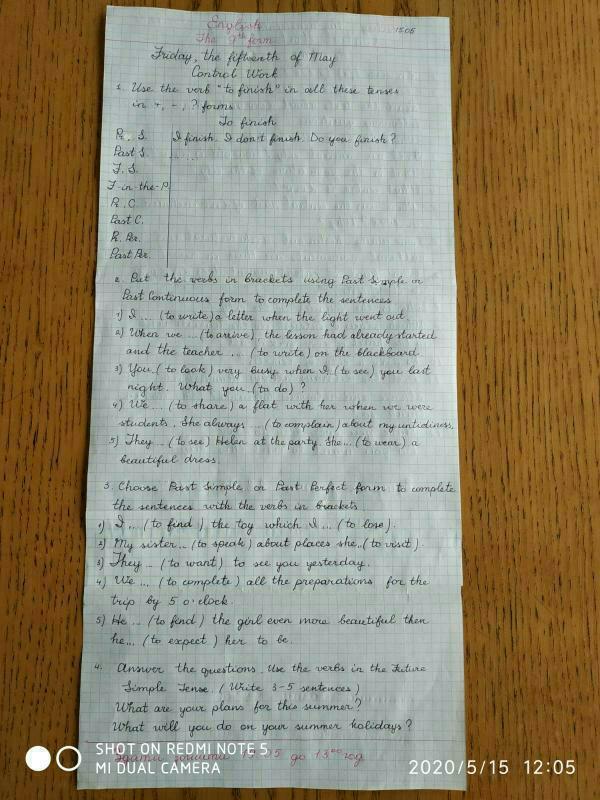 English
15.05
The 9th form
Friday, the fifteenth of May
Control Work
1. Use the verb "to finish" in all these tenses
in +, -, ? forms.
To finish
Pr. S. I finish. I don't finish. Do you finish?
Past S. .....
F. S.
F-in-the-P.
Pr. C.
Past C.
Pr. Per.
Past Per.
2. Put the verbs in brackets using Past Simple or
Past Continuous form to complete the sentences
1) I ... (to write) a letter when the light went out.
2) When we ... (to arrive), the lesson had already started
and the teacher ... (to write) on the blackboard.
3) You (to look) very busy when I (to see) you last
night. What you (to do)?
4) We ... (to share) a flat with her when we were
students. She always ... (to complain) about my untidiness.
5) They ... (to see) Helen at the party. She ... (to wear) a
beautiful dress.
3. Choose Past Simple or Past Perfect form to complete
the sentences with the verbs in brackets
1) I ... (to find) the toy which I ... (to lose).
2) My sister ... (to speak) about places she ... (to visit).
3) They ... (to want) to see you yesterday.
4) We ... (to complete) all the preparations for the
trip by 5 o'clock.
5) He ... (to find) the girl even more beautiful then
he ... (to expect) her to be.
4. Answer the questions. Use the verbs in the Future
Simple Tense. (Write 3-5 sentences)
What are your plans for this summer?
What will you do on your summer holidays?
15.05 до 13⁰⁰ год
SHOT ON REDMI NOTE 5
MI DUAL CAMERA
2020/5/15 12:05